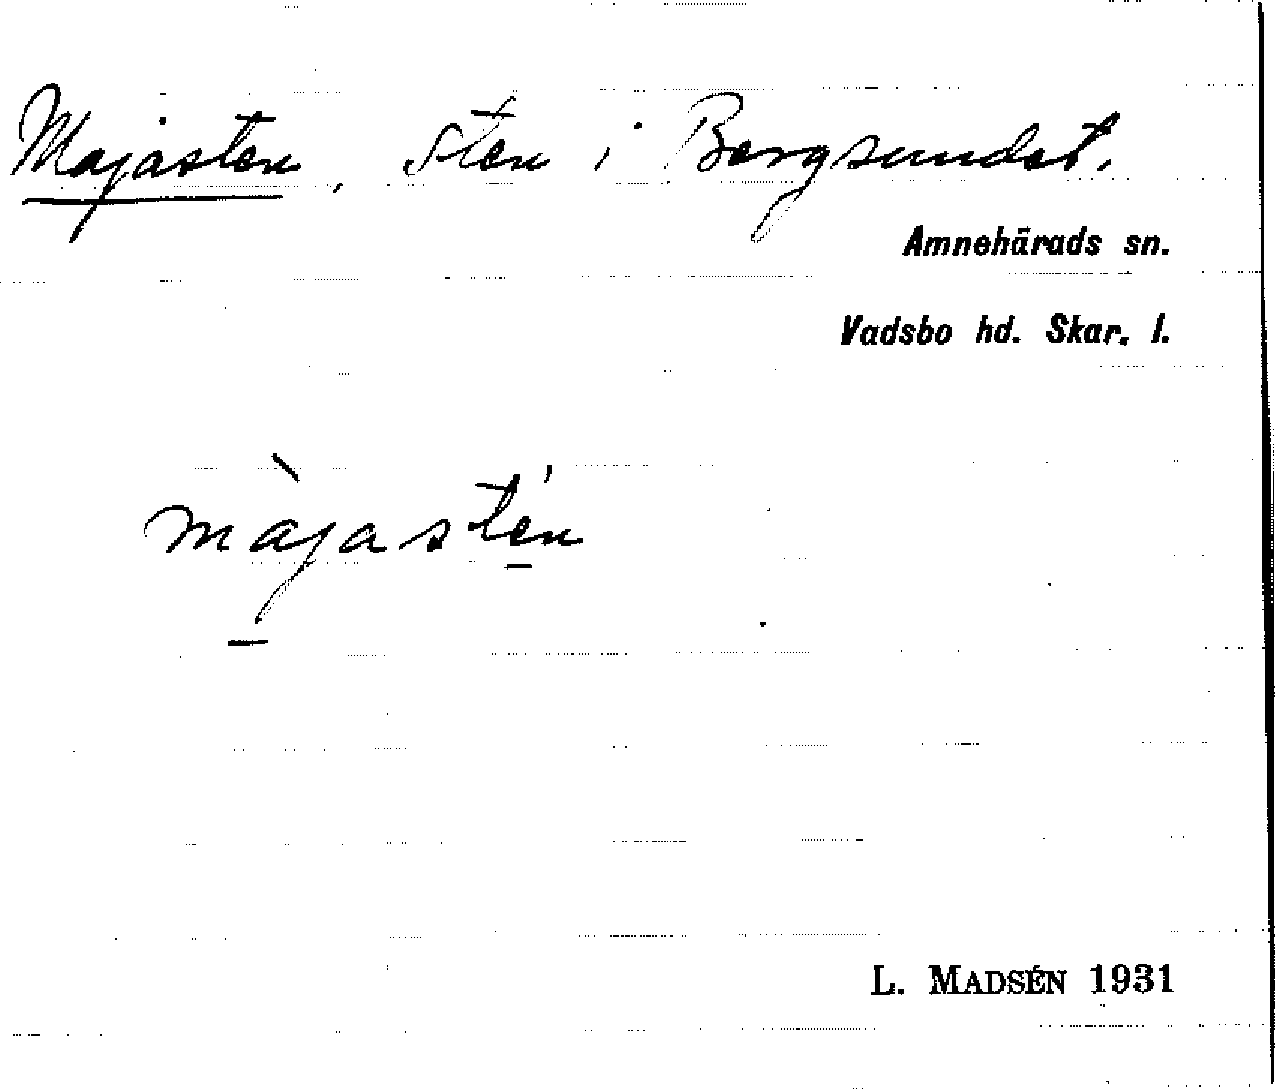 Majasten, Sten i Bergsundet.
Amnehärads sn.
Vadsbo hd. Skar. l.
màjastén
L. MADSÉN 1931